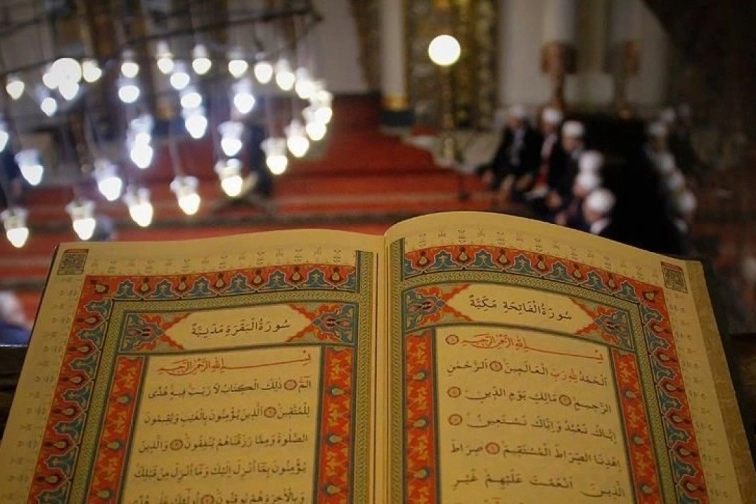 سُورَةُ الْفَاتِحَةِ مَكِّيَّةٌ
بِسْمِ اللّٰهِ الرَّحْمٰنِ الرَّحِيمِ
اَلْحَمْدُ لِلّٰهِ رَبِّ الْعَالَمِينَ اَلرَّحْمٰنِ
الرَّحِيمِ مَالِكِ يَوْمِ الدِّينِ
اِيَّاكَ نَعْبُدُ وَاِيَّاكَ نَسْتَعِينُ
اِهْدِنَا الصِّرَاطَ الْمُسْتَقِيمَ صِرَاطَ
الَّذِينَ اَنْعَمْتَ عَلَيْهِمْ غَيْرِ
سُورَةُ الْبَقَرَةِ مَدَنِيَّةٌ
بِسْمِ اللّٰهِ الرَّحْمٰنِ الرَّحِيمِ
الٓمٓ ذٰلِكَ الْكِتَابُ لَا رَيْبَ فِيهِ هُدًى
لِلْمُتَّقِينَ اَلَّذِينَ يُؤْمِنُونَ بِالْغَيْبِ وَيُقِيمُونَ
الصَّلٰوةَ وَمِمَّا رَزَقْنَاهُمْ يُنْفِقُونَ وَالَّذِينَ
يُؤْمِنُونَ بِمَا اُنْزِلَ اِلَيْكَ وَمَا اُنْزِلَ مِنْ قَبْلِكَ
وَبِالْاٰخِرَةِ هُمْ يُوقِنُونَ اُولٰئِكَ عَلٰى هُدًى